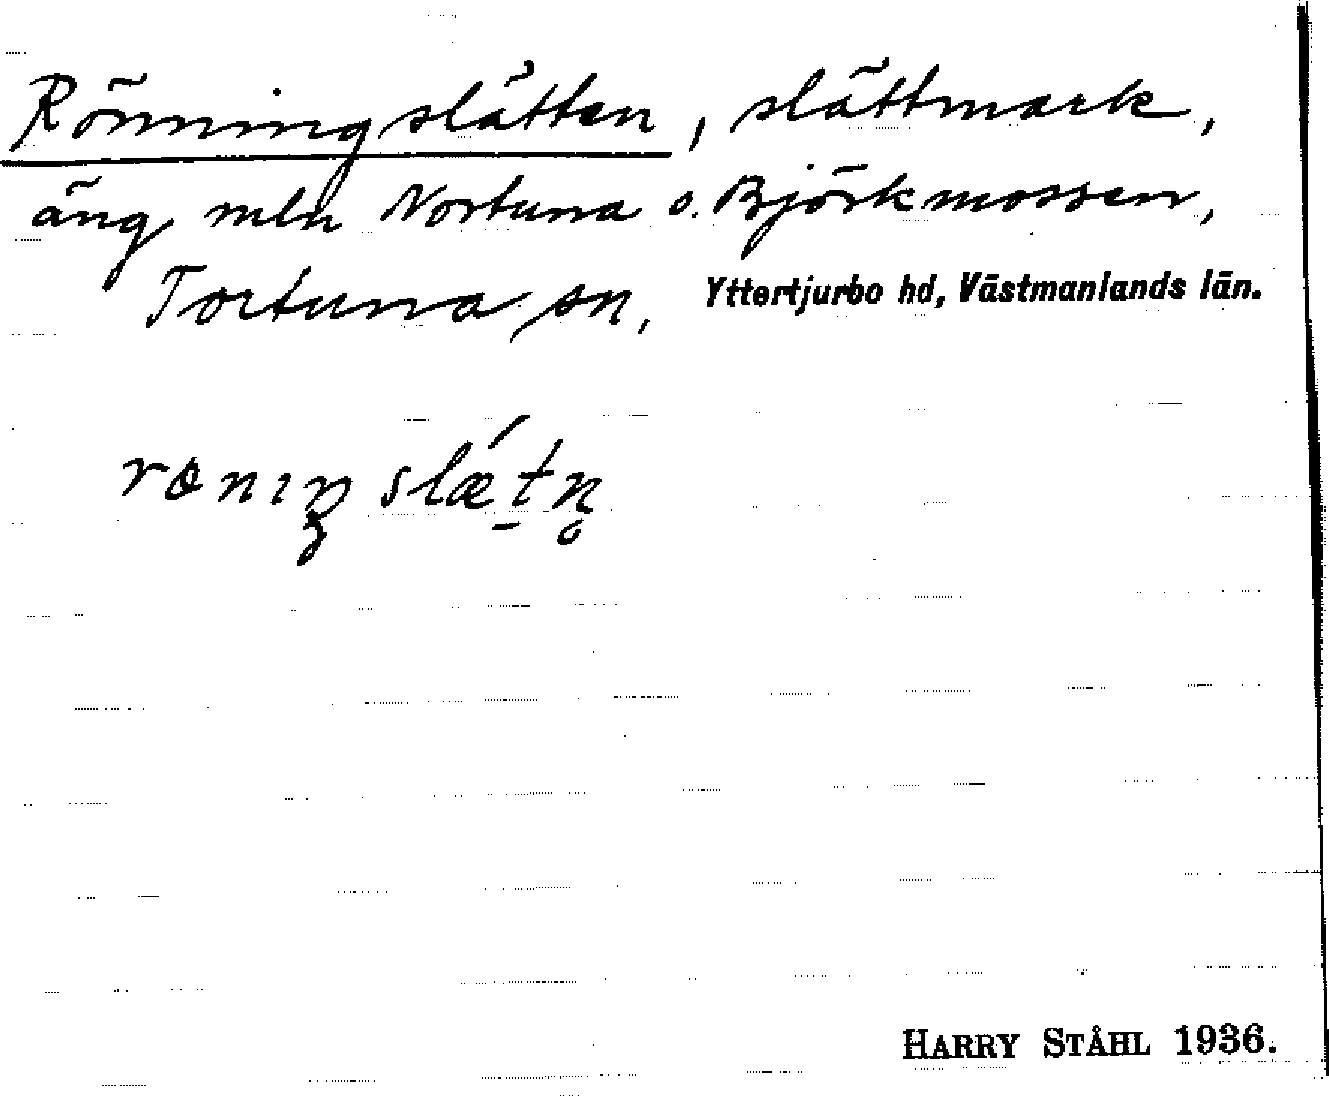 Rönningslätten, slättmark,
äng mln Nortuna o. Björkmossen,
Tortuna sn, Yttertjurbo hd, Västmanlands län.
rɵnıŋslǽt̠n̥
HARRY STÅHL 1936.